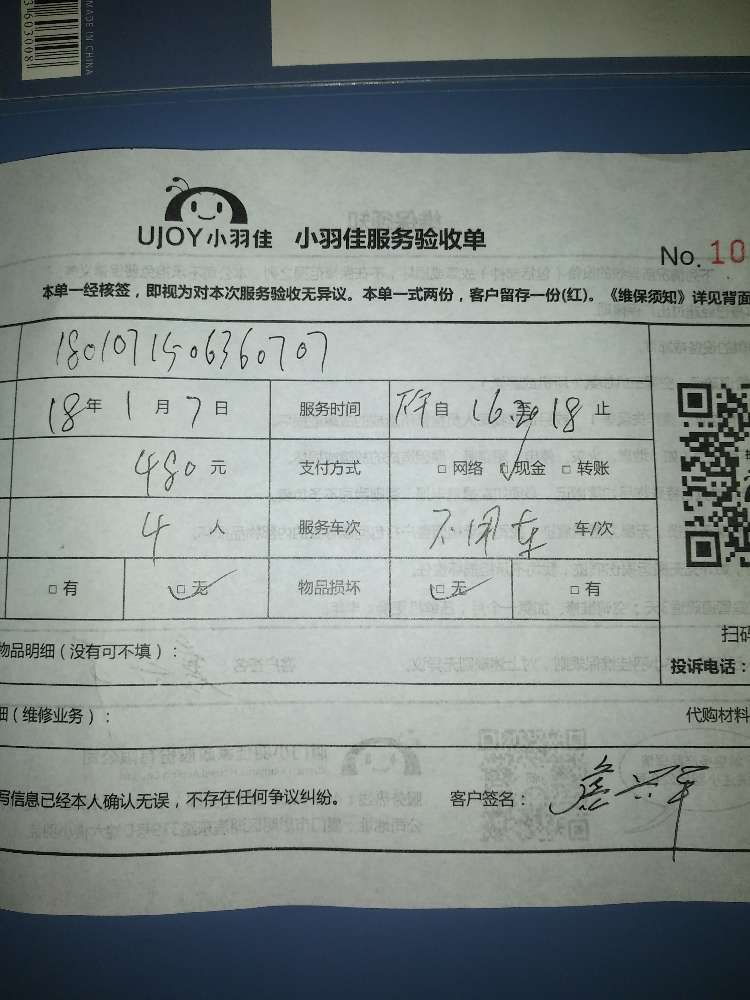 MADE IN CHINA
UJOY小羽佳 小羽佳服务验收单
No. 10
本单一经核签，即视为对本次服务验收无异议。本单一式两份，客户留存一份(红)。《维保须知》详见背面
18年1月7日 服务时间 自16 18止
480元 支付方式 □网络 ☑现金 □转账
4人 服务车次 不用车 车/次
□有 ☑无 物品损坏 ☑无 □有
扫码
物品明细（没有可不填）：
投诉电话：
细（维修业务）： 代购材料
写信息已经本人确认无误，不存在任何争议纠纷。 客户签名：